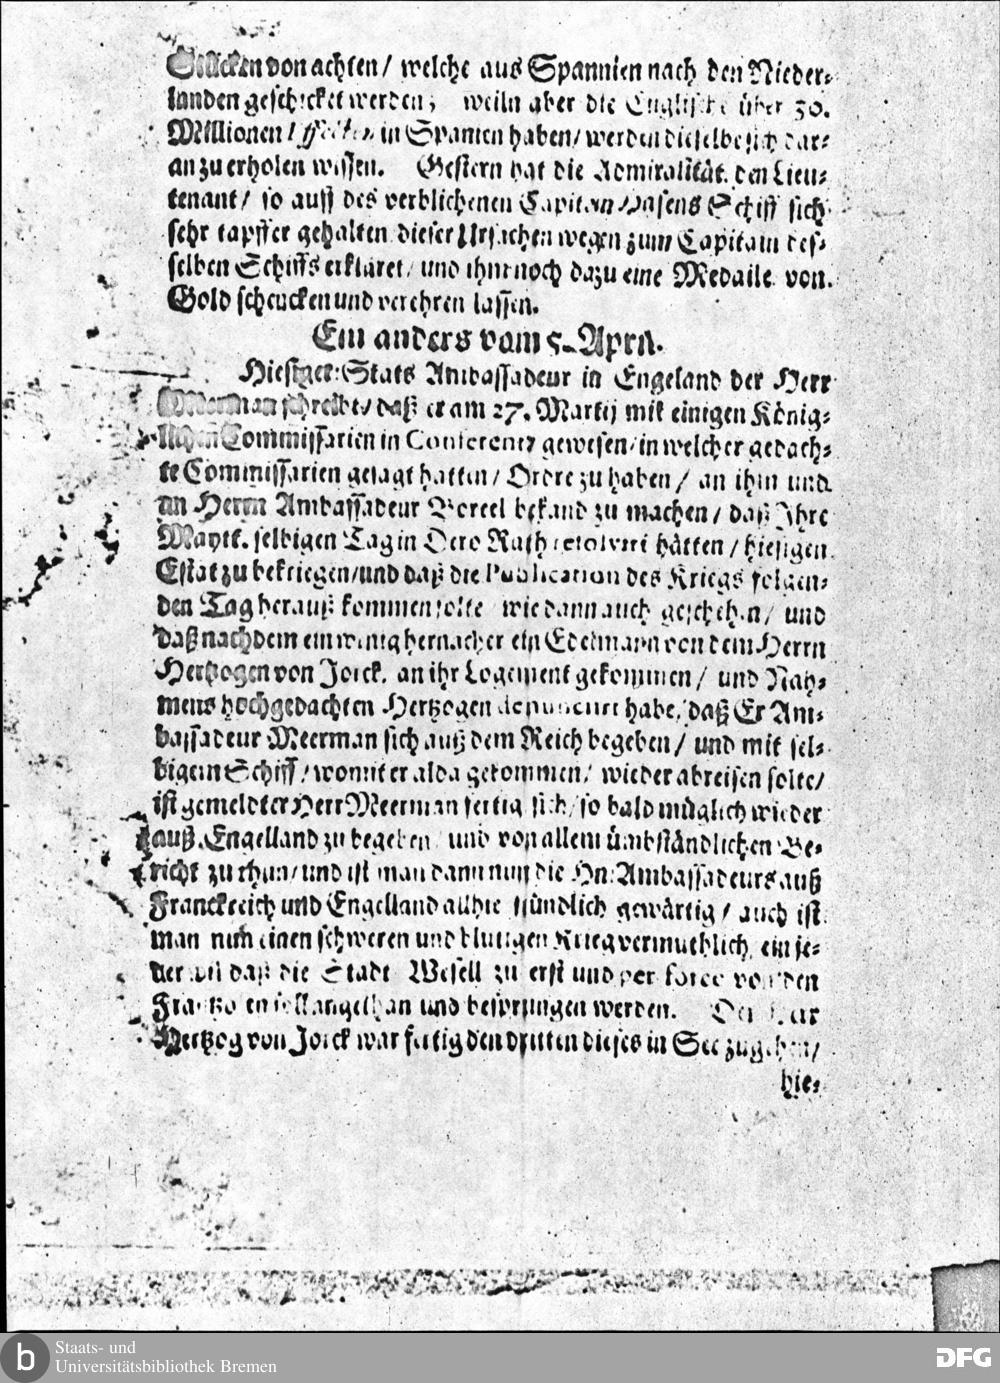 Stücken von achten / welche aus Spannien nach den Nieder-
landen geschicket werden; weiln aber die Englische über 30.
Millionen Effecten in Spanien haben / werden dieselbe sich dar-
an zu erholen wissen. Gestern hat die Admiralität den Lieu-
tenant / so auff des verblichenen Capitain Hasens Schiff sich
sehr tapffer gehalten dieser Ursachen wegen zum Capitain des-
selben Schiffs erkläret / und ihm noch dazu eine Medaile von
Gold schencken und verehren lassen.
Ein anders vom 5. April.
Hiesiger Stats Ambassadeur in Engeland der Herr
Meerman schreibt / daß er am 27. Martij mit einigen König-
lichen Commissarien in Conferentz gewesen / in welcher gedach-
te Commissarien gesagt hatten / Ordre zu haben / an ihm und
an Herrn Ambassadeur Boreel bekand zu machen / daß Ihre
Maytt. selbigen Tag in Dero Rath resolvirt hätten / hiesigen
Estat zu bekriegen / und daß die Publication des Kriegs folgen-
den Tag herauß kommen solte / wie dann auch geschehen / und
daß nachdem ein wenig hernacher ein Edelmann von dem Herrn
Hertzogen von Jorck, an ihr Logement gekommen / und Nah-
mens hochgedachten Hertzogen denuncirt habe, daß Er Am-
bassadeur Meerman sich auß dem Reich begeben / und mit sel-
bigem Schiff / womit er alda gekommen / wieder abreisen solte /
ist gemeldter Herr Meerman fertig sich / so bald müglich wieder
auß Engelland zu begeben / und von allem ümbständlichen Be-
richt zu thun / und ist man dann nun die Hn: Ambassadeurs auß
Franckreich und Engelland allhie stündlich gewärtig / auch ist
man nun einen schweren und blutigen Krieg vermuthlich, ein je-
der wil daß die Stadt Wesell zu erst und per force von den
Frantzosen soll angethan und besprungen werden. Der Herr
Hertzog von Jorck war fertig den dritten dieses in See zu gehen /
hie-
b Staats- und
Universitätsbibliothek Bremen
DFG